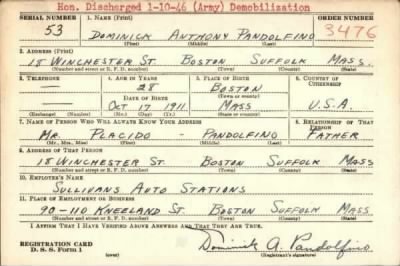 Hon. Discharged 1-10-46 (Army) Demobilization
SERIAL NUMBER 1. NAME (Print) ORDER NUMBER
53 DOMINICK ANTHONY PANDOLFINO 3476
(First) (Middle) (Last)
2. ADDRESS (Print)
18 WINCHESTER ST. BOSTON SUFFOLK MASS.
(Number and street or R. F. D. number) (Town) (County) (State)
3. TELEPHONE 4. AGE IN YEARS 5. PLACE OF BIRTH 6. COUNTRY OF CITIZENSHIP
— 28 BOSTON
DATE OF BIRTH (Town or county)
— OCT 17 1911 MASS U.S.A.
(Exchange) (Number) (Mo.) (Day) (Yr.) (State or country)
7. NAME OF PERSON WHO WILL ALWAYS KNOW YOUR ADDRESS 8. RELATIONSHIP OF THAT PERSON
MR. PLACIDO - PANDOLFINO FATHER
(Mr., Mrs., Miss) (First) (Middle) (Last)
9. ADDRESS OF THAT PERSON
18 WINCHESTER ST. BOSTON SUFFOLK MASS
(Number and street or R. F. D. number) (Town) (County) (State)
10. EMPLOYER'S NAME
SULLIVANS AUTO STATIONS
11. PLACE OF EMPLOYMENT OR BUSINESS
90-110 KNEELAND ST. BOSTON SUFFOLK MASS
(Number and street or R. F. D. number) (Town) (County) (State)
I AFFIRM THAT I HAVE VERIFIED ABOVE ANSWERS AND THAT THEY ARE TRUE.
REGISTRATION CARD
D. S. S. Form 1 Dominick A. Pandolfino
(Registrant's signature)